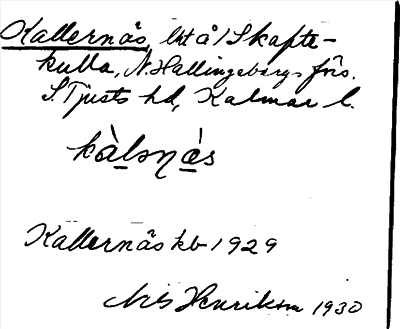 Kallernäs, lht å/ Skafte-
kulla, N. Hallingebergs förs.
S. Tjusts hd, Kalmar l.
kàlsnás
Kallernäs kb 1929
Nils Henrikson 1930